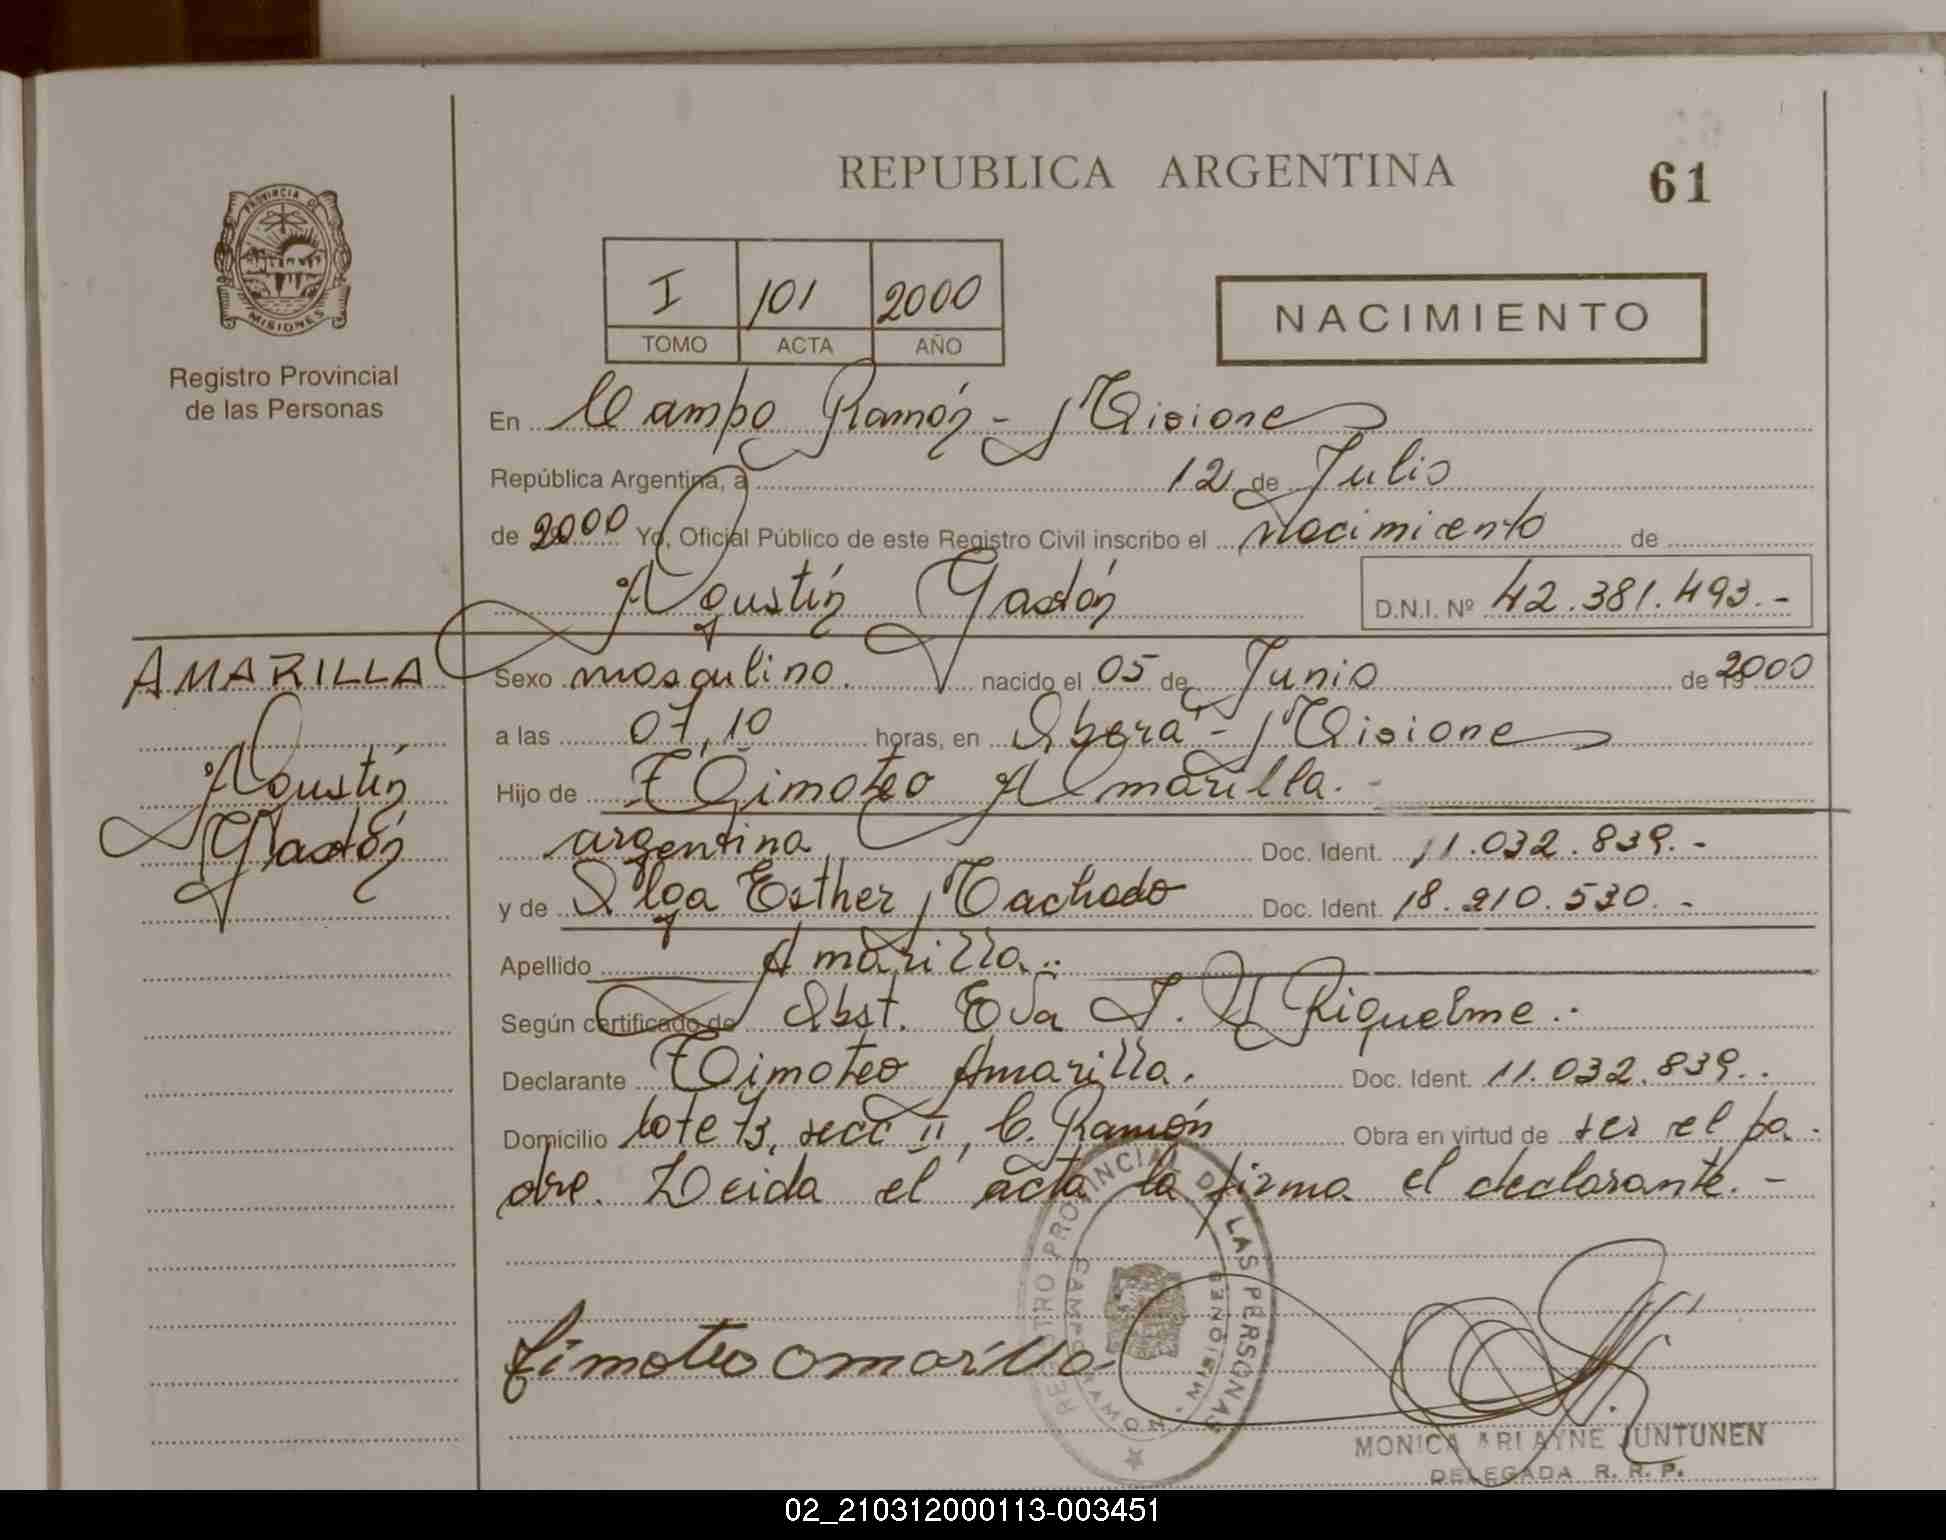 PROVINCIA DE
MISIONES
Registro Provincial
de las Personas
REPUBLICA ARGENTINA
61
I 101 2000
TOMO ACTA AÑO
NACIMIENTO
En Campo Ramón - Misiones
República Argentina, a 12 de Julio
de 2000 Yo, Oficial Público de este Registro Civil inscribo el Nacimiento de
Agustín Gastón D.N.I. Nº 42.381.493.-
AMARILLA
Agustín
Gastón
Sexo masculino. nacido el 05 de Junio de 2000
a las 07,10 horas, en Oberá - Misiones
Hijo de Timoteo Amarilla.-
argentina Doc. Ident. 11.032.839.-
y de Olga Esther Machado Doc. Ident. 18.210.530.-
Apellido Amarilla..
Según certificado de Obst. Eva Riquelme..
Declarante Timoteo Amarilla. Doc. Ident. 11.032.839..
Domicilio lote 73, secc II, C. Ramón Obra en virtud de ser el pa-
dre. Leida el acta la firma el declarante.-
REGISTRO PROVINCIAL DE LAS PERSONAS
CAMPO RAMON - MISIONES
timoteo amarilla
MONICA ARLAYNE JUNTUNEN
DELEGADA R. R. P.
02_210312000113-003451